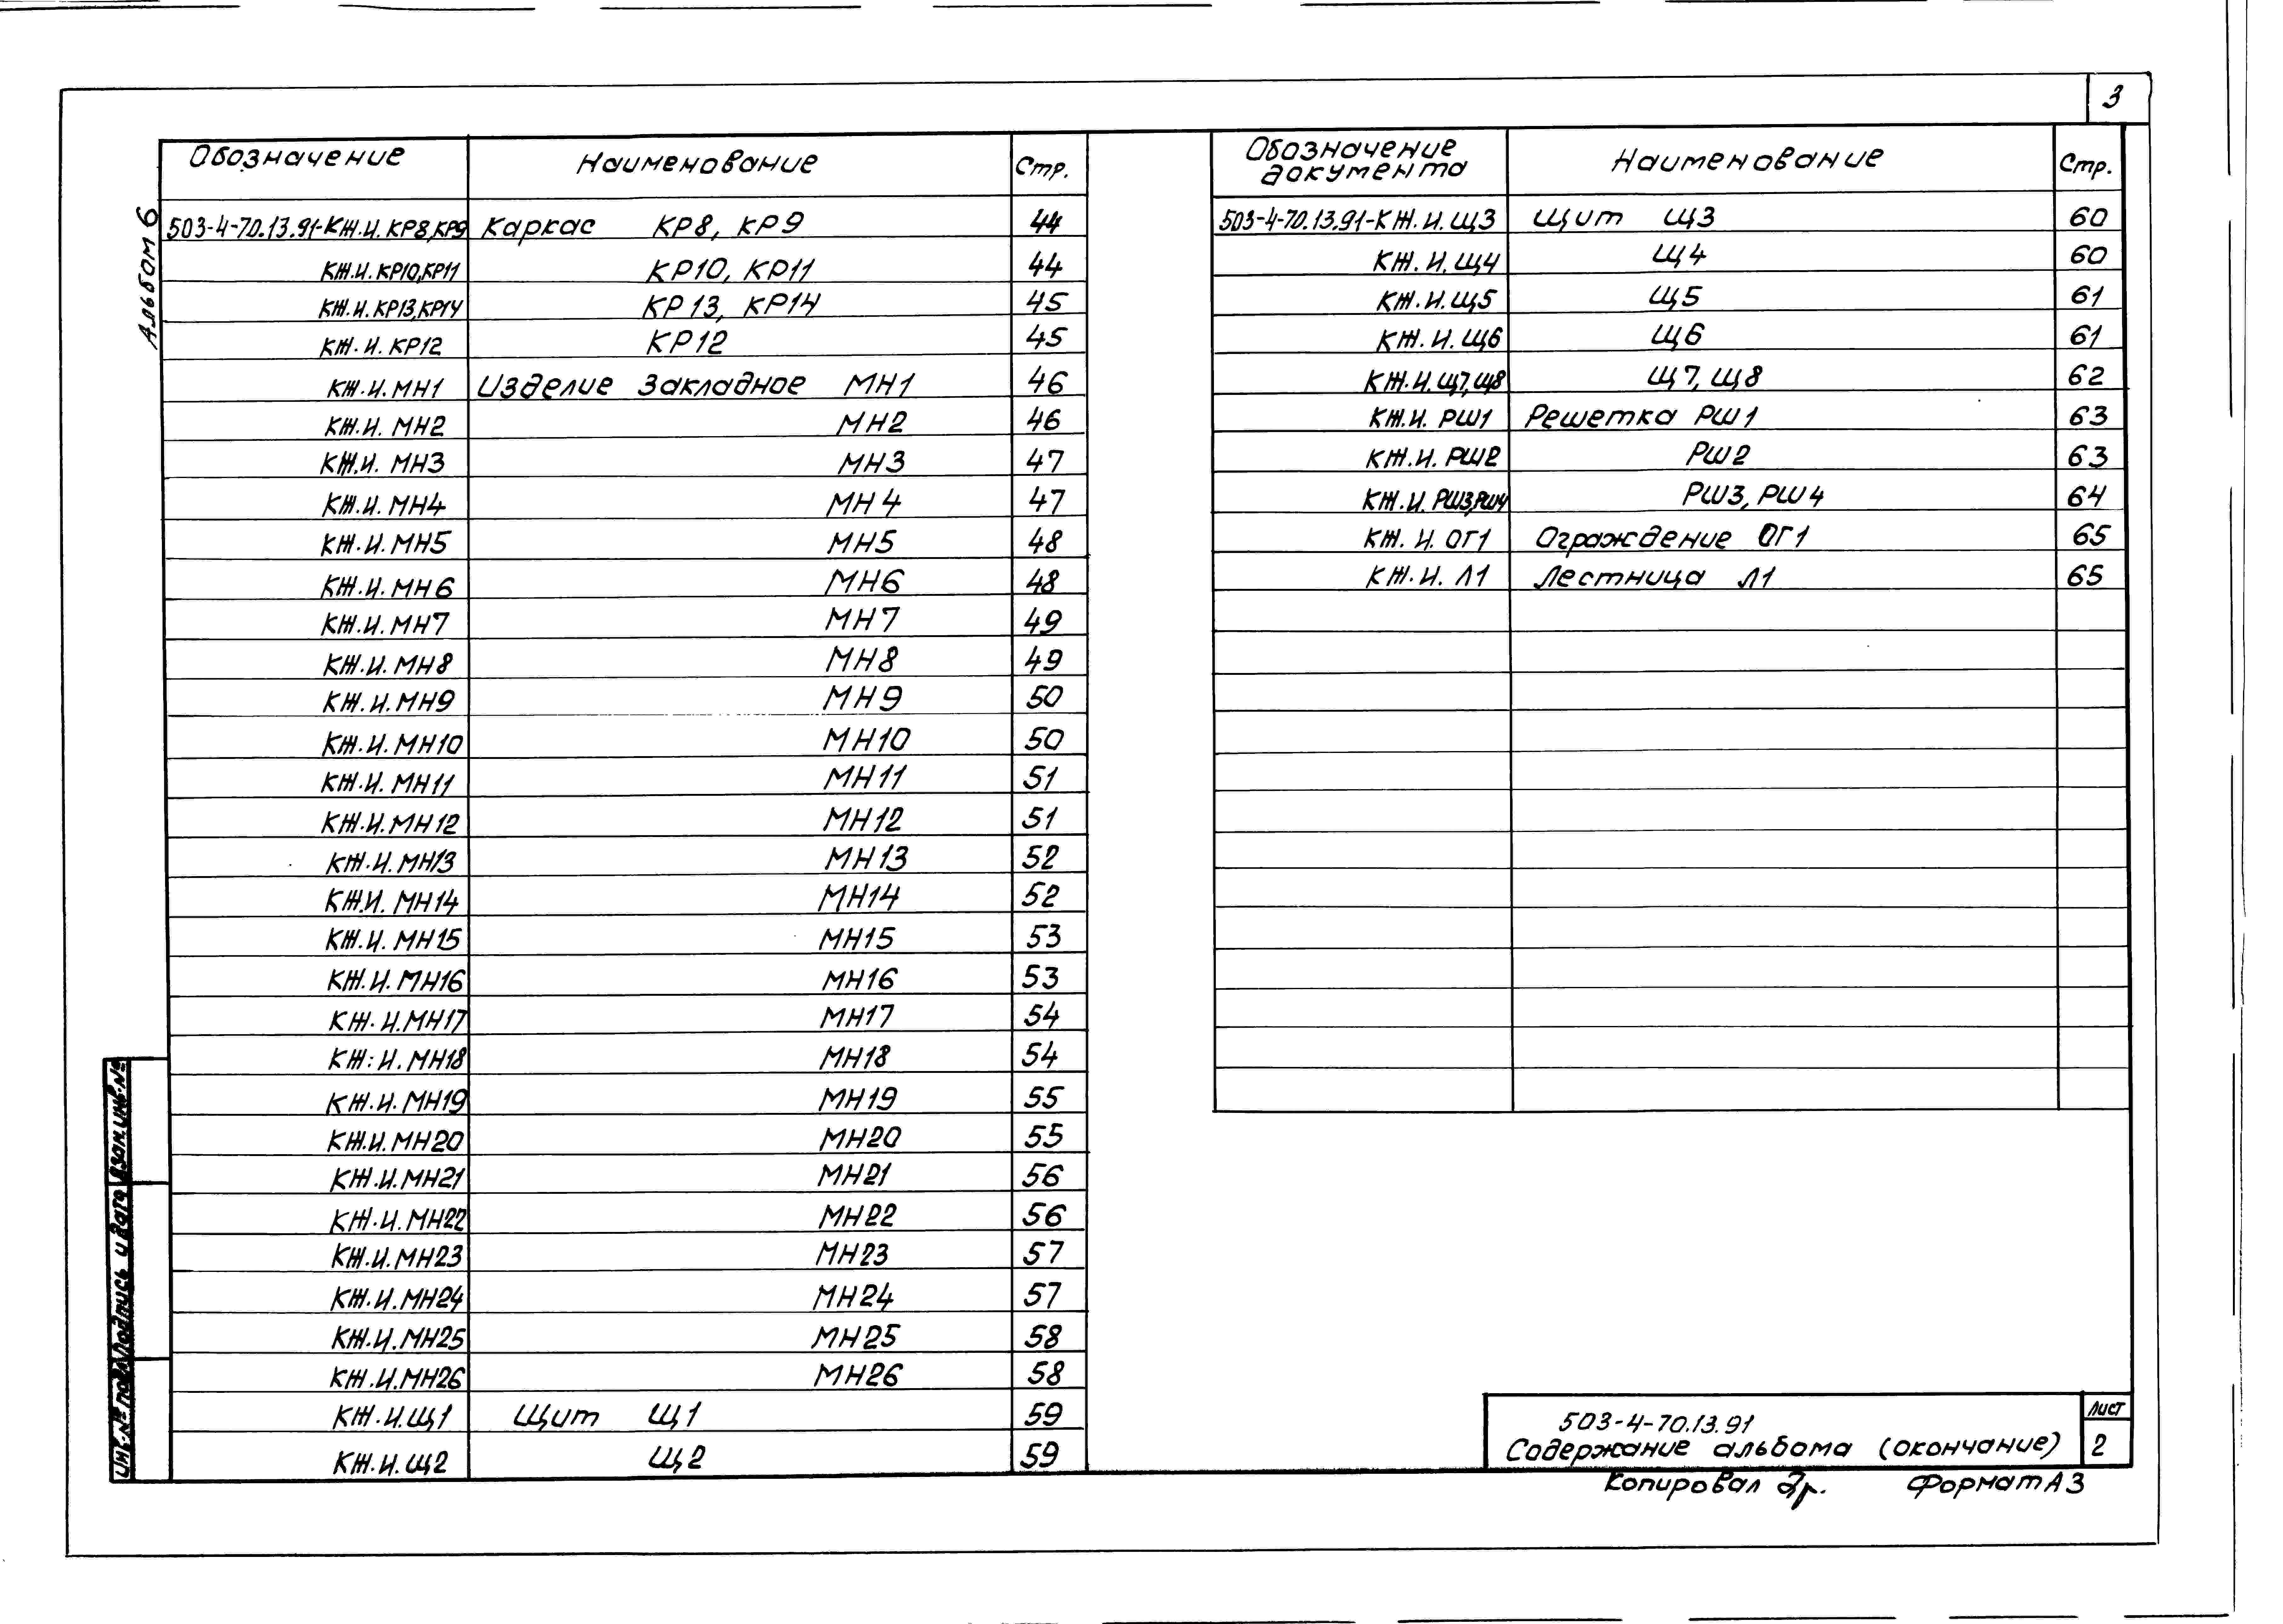 3
Альбом 6
Обозначение Наименование Стр.
503-4-70.13.91-КЖ.И.КР8,КР9 Каркас КР8, КР9 44
КЖ.И.КР10,КР11 КР10, КР11 44
КЖ.И.КР13,КР14 КР13, КР14 45
КЖ.И.КР12 КР12 45
КЖ.И.МН1 Изделие закладное МН1 46
КЖ.И.МН2 МН2 46
КЖ.И.МН3 МН3 47
КЖ.И.МН4 МН4 47
КЖ.И.МН5 МН5 48
КЖ.И.МН6 МН6 48
КЖ.И.МН7 МН7 49
КЖ.И.МН8 МН8 49
КЖ.И.МН9 МН9 50
КЖ.И.МН10 МН10 50
КЖ.И.МН11 МН11 51
КЖ.И.МН12 МН12 51
КЖ.И.МН13 МН13 52
КЖ.И.МН14 МН14 52
КЖ.И.МН15 МН15 53
КЖ.И.МН16 МН16 53
КЖ.И.МН17 МН17 54
КЖ.И.МН18 МН18 54
КЖ.И.МН19 МН19 55
КЖ.И.МН20 МН20 55
КЖ.И.МН21 МН21 56
КЖ.И.МН22 МН22 56
КЖ.И.МН23 МН23 57
КЖ.И.МН24 МН24 57
КЖ.И.МН25 МН25 58
КЖ.И.МН26 МН26 58
КЖ.И.Щ1 Щит Щ1 59
КЖ.И.Щ2 Щ2 59
Обозначение документа Наименование Стр.
503-4-70.13.91-КЖ.И.Щ3 Щит Щ3 60
КЖ.И.Щ4 Щ4 60
КЖ.И.Щ5 Щ5 61
КЖ.И.Щ6 Щ6 61
КЖ.И.Щ7,Щ8 Щ7, Щ8 62
КЖ.И.РШ1 Решетка РШ1 63
КЖ.И.РШ2 РШ2 63
КЖ.И.РШ3,РШ4 РШ3, РШ4 64
КЖ.И.ОГ1 Ограждение ОГ1 65
КЖ.И.Л1 Лестница Л1 65
Взам.инв.№
Подпись и дата
Инв.№ подл
503-4-70.13.91
Содержание альбома (окончание)
Лист
2
Копировал
Формат А3